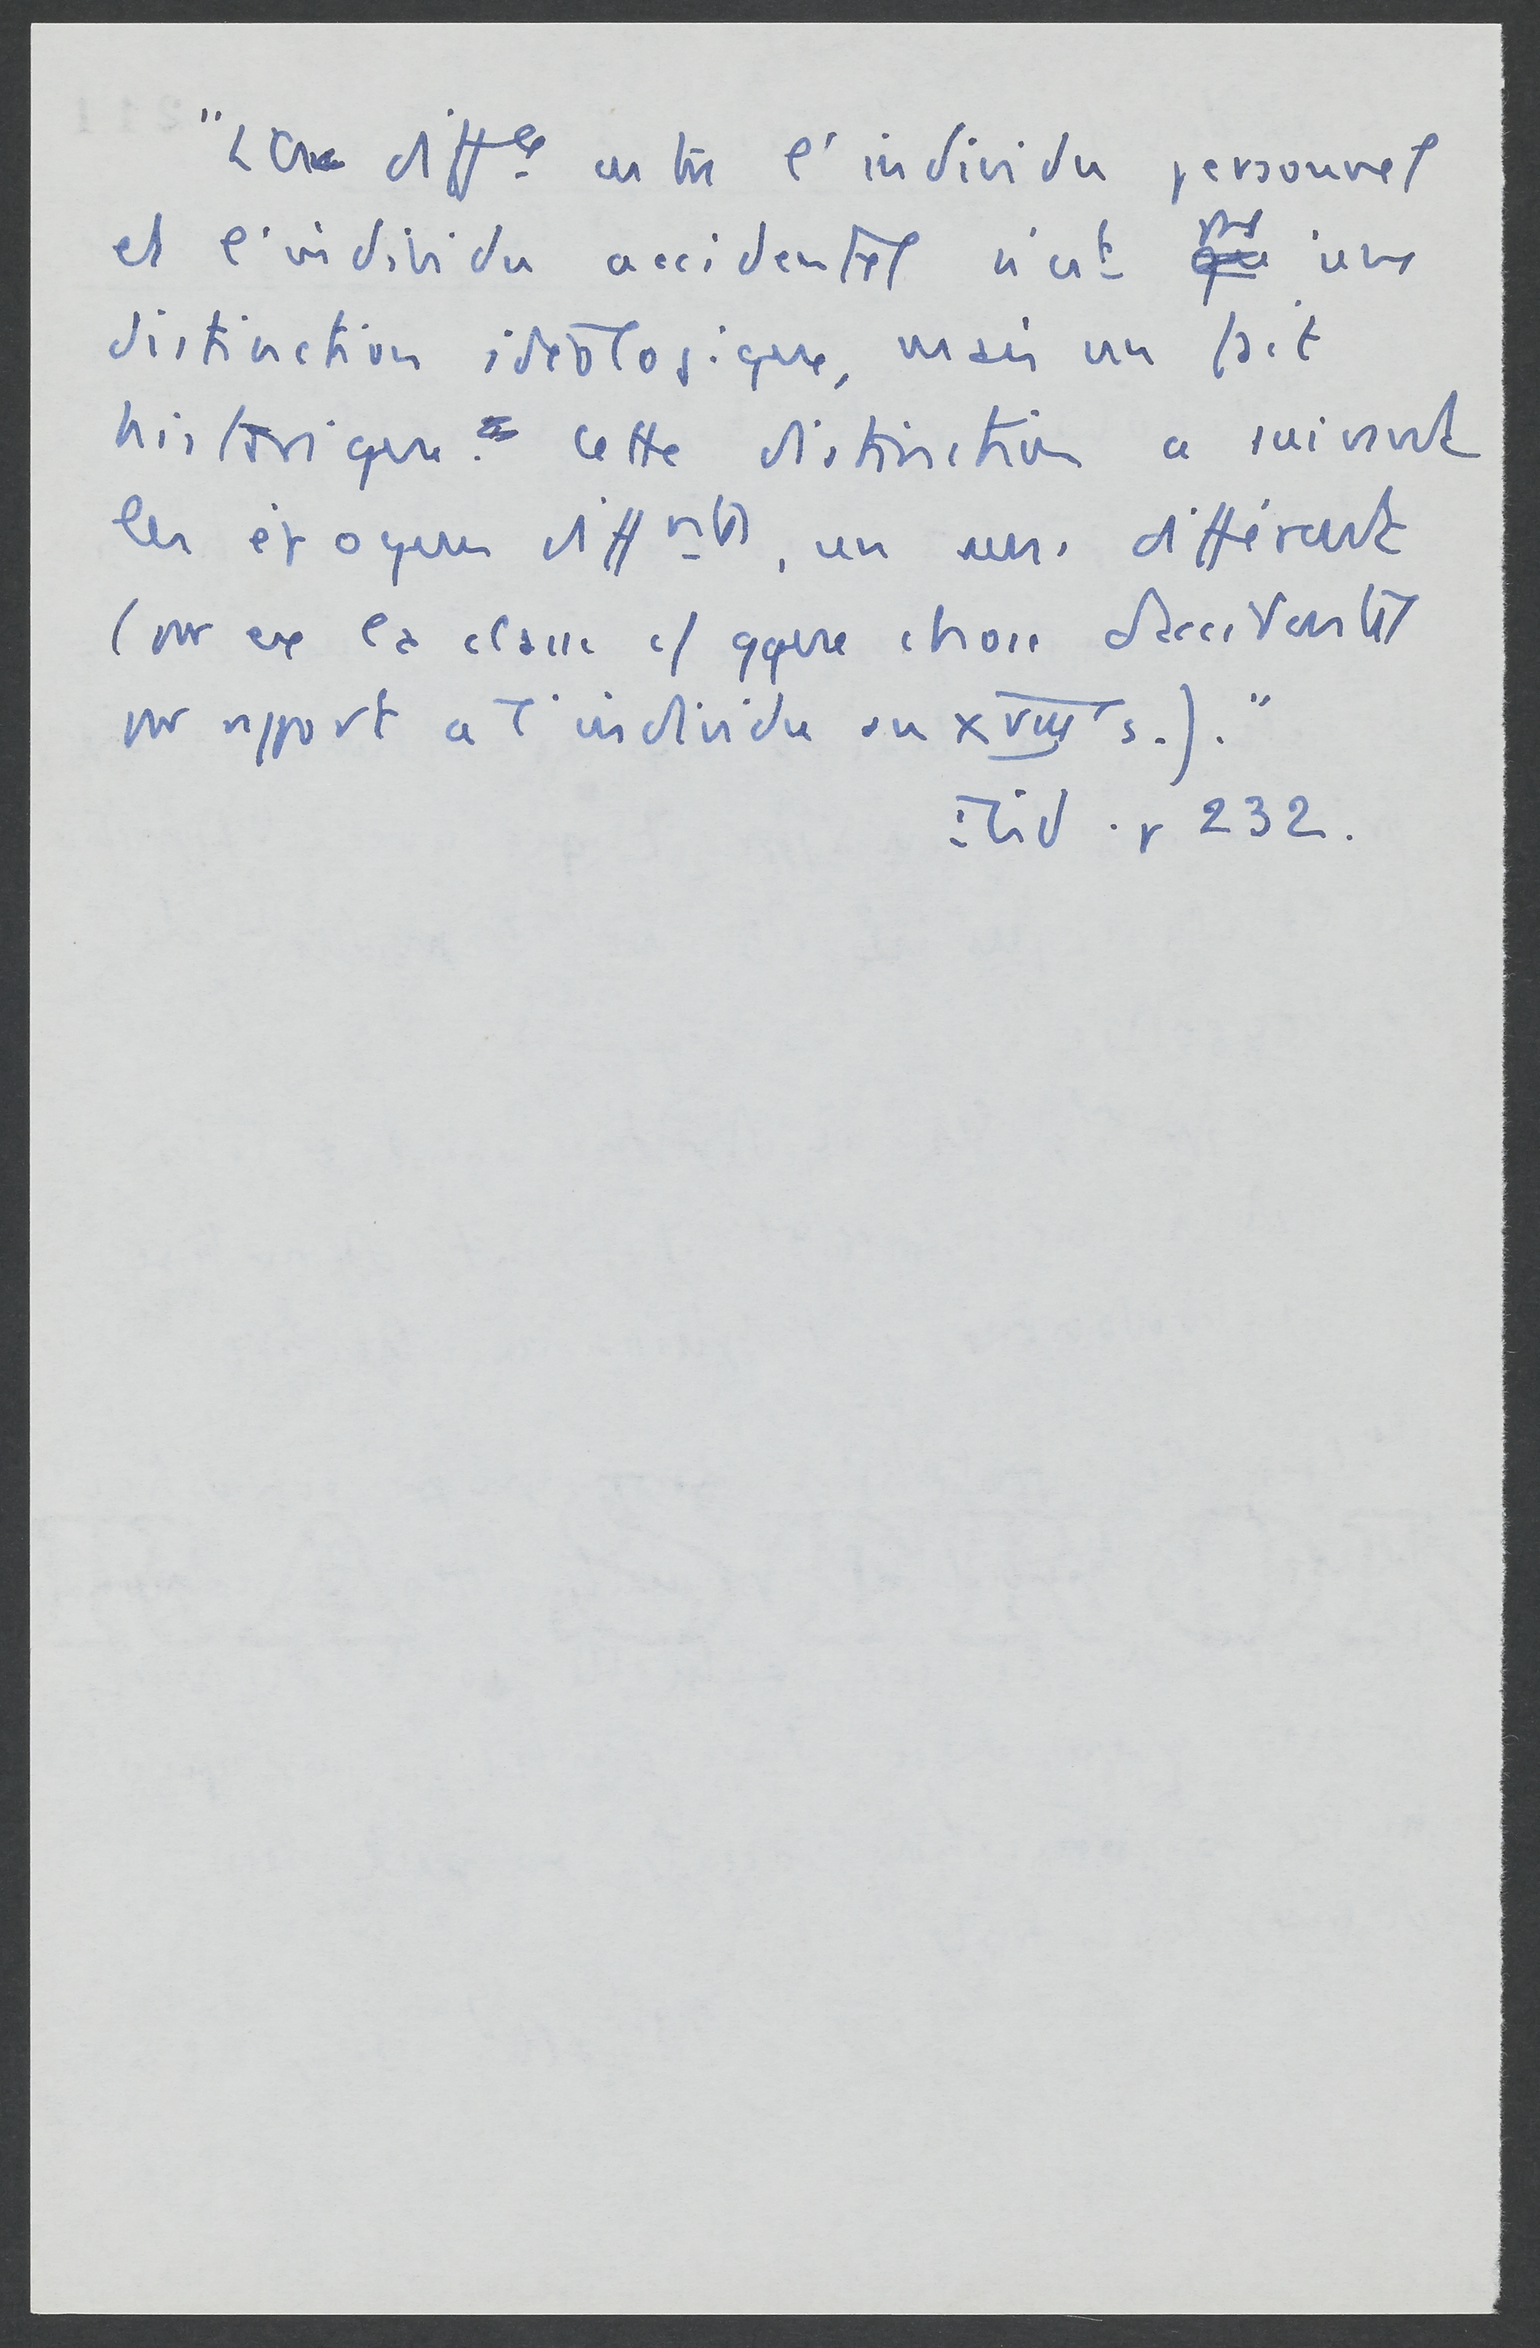 "La diff^ce entre l'individu personnel
et l'individu accidentel n'est pas une
distinction idéologique, mais un fait
historique. Cette distinction a suivant
les époques diff^ntes, un sens différent
(par ex la classe c/ qque chose d'accidentel
par rapport à l'individu au XVIII^e s.)."
Ibid. p 232.